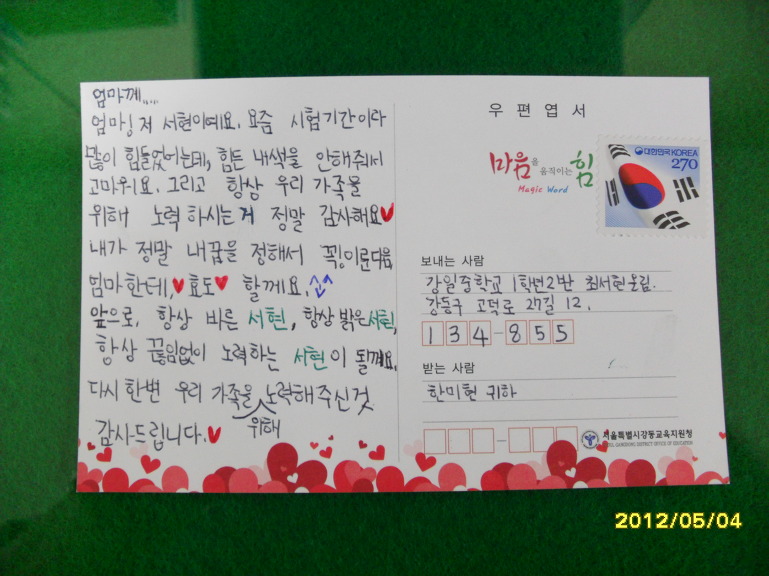 엄마께....
엄마! 저 서현이예요. 요즘 시험기간이라
많이 힘들었는데, 힘든 내색을 안해줘서
고마워요. 그리고 항상 우리 가족을
위해 노력하시는거 정말 감사해요♥
내가 정말 내꿈을 정해서 꼭! 이룬다음
엄마한테, ♥효도♥ 할께요. ^^
앞으로, 항상 바른 서현, 항상 밝은 서현,
항상 끊임없이 노력하는 서현이 될께요.
다시한번 우리 가족을 노력해주신것
위해
감사드립니다.♥
우편엽서
마음을 움직이는 힘
Magic Word
대한민국 KOREA
270
보내는 사람
강일중학교 1학년2반 최서현올림.
강동구 고덕로 27길 12.
134-855
받는 사람
한미현 귀하
서울특별시강동교육지원청
SEOUL GANGDONG DISTRICT OFFICE OF EDUCATION
2012/05/04